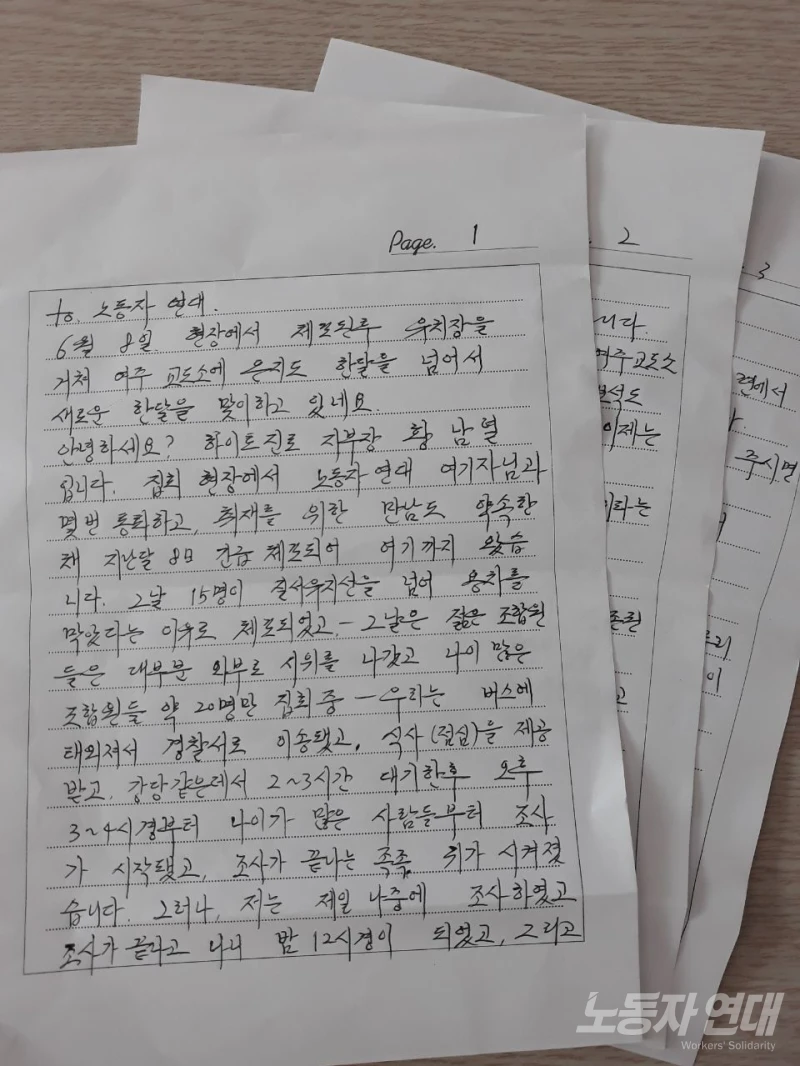 Page. 1
to. 노동자 연대.
6월 8일. 현장에서 체포된후 유치장을
거쳐 여주 교도소에 온지도 한달을 넘어서
새로운 한달을 맞이하고 있네요.
안녕하세요? 하이트진로 지부장 황남열
입니다. 집회 현장에서 노동자연대 여기자님과
몇번 통화하고, 취재를 위한 만남도 약속한
채 지난달 8日 긴급 체포되어 여기까지 왔습
니다. 그날 15명이 질서유지선을 넘어 용차를
막았다는 이유로 체포되었고, - 그날은 젊은 조합원
들은 대부분 외부로 시위를 나갔고 나이 많은
조합원들 약 20명만 집회 중 - 우리는 버스에
태워져서 경찰서로 이송됐고, 식사(점심)을 제공
받고, 강당같은데서 2~3시간 대기한후 오후
3~4시경부터 나이가 많은 사람들부터 조사
가 시작됐고, 조사가 끝나는 족족, 귀가 시켜졌
습니다. 그러나, 저는 제일 나중에 조사하였고
조사가 끝나고 나니 밤 12시경이 되었고, 그리고
2
니다.
여주교도소
보석도
이제는
이라는
3
면에서
주시면
이
노동자 연대
Workers' Solidarity